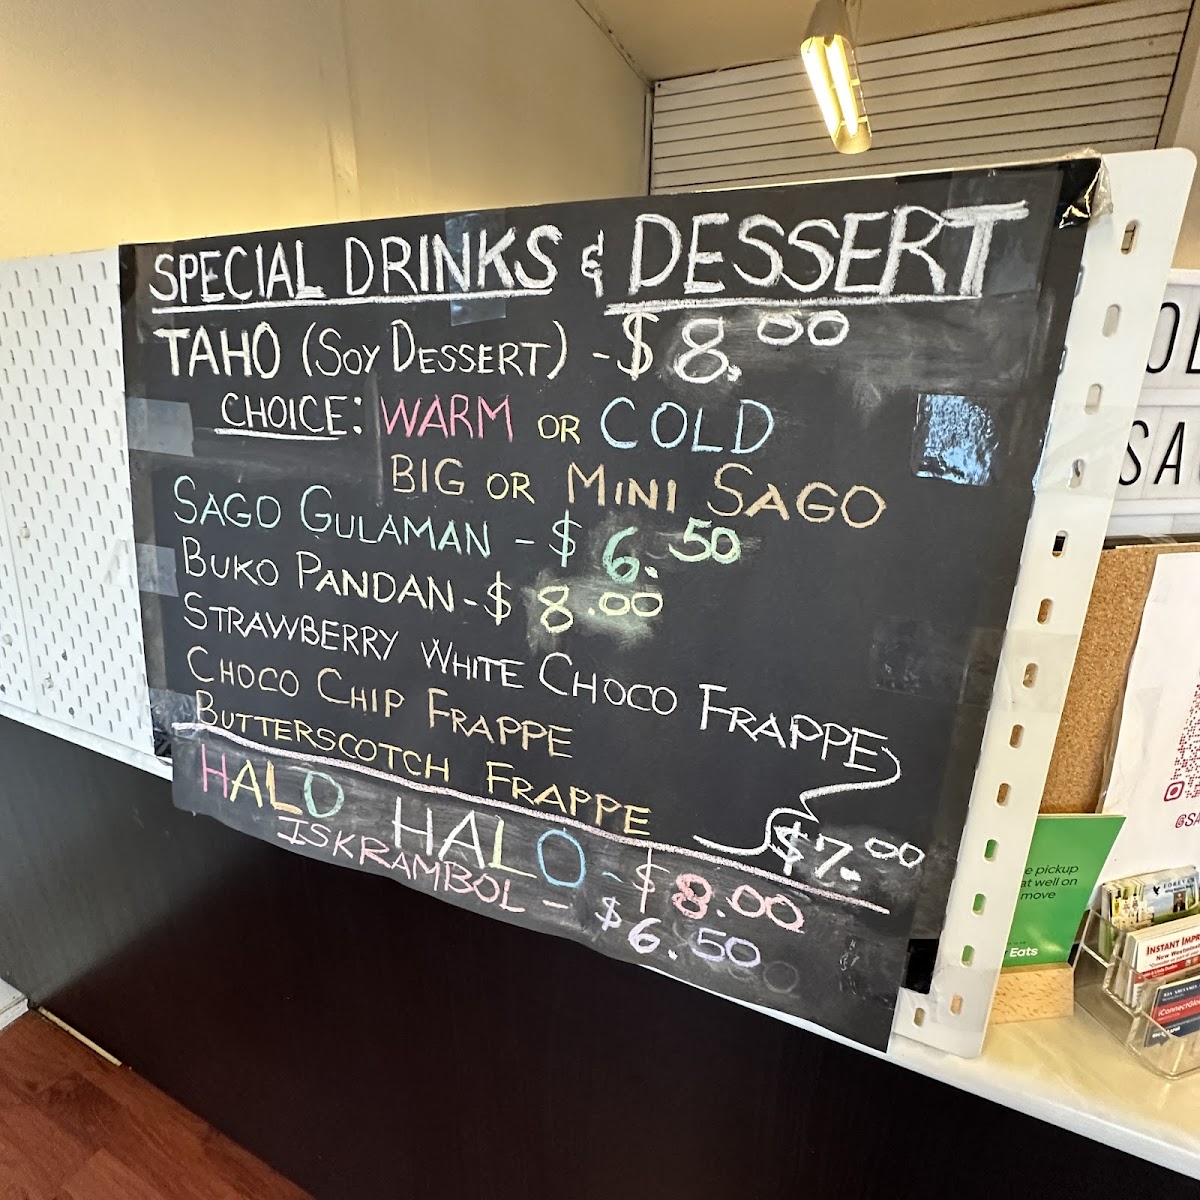 SPECIAL DRINKS & DESSERT
TAHO (SOY DESSERT) - $8.00
CHOICE: WARM OR COLD
BIG OR MINI SAGO
SAGO GULAMAN - $6.50
BUKO PANDAN - $8.00
STRAWBERRY WHITE CHOCO FRAPPE
CHOCO CHIP FRAPPE
BUTTERSCOTCH FRAPPE
$7.00
HALO HALO - $8.00
ISKRAMBOL - $6.50
OL
SA
@SA
e pickup
at well on
move
Eats
FOREVER
INSTANT IMPR
New Westminst
iConnectGlo